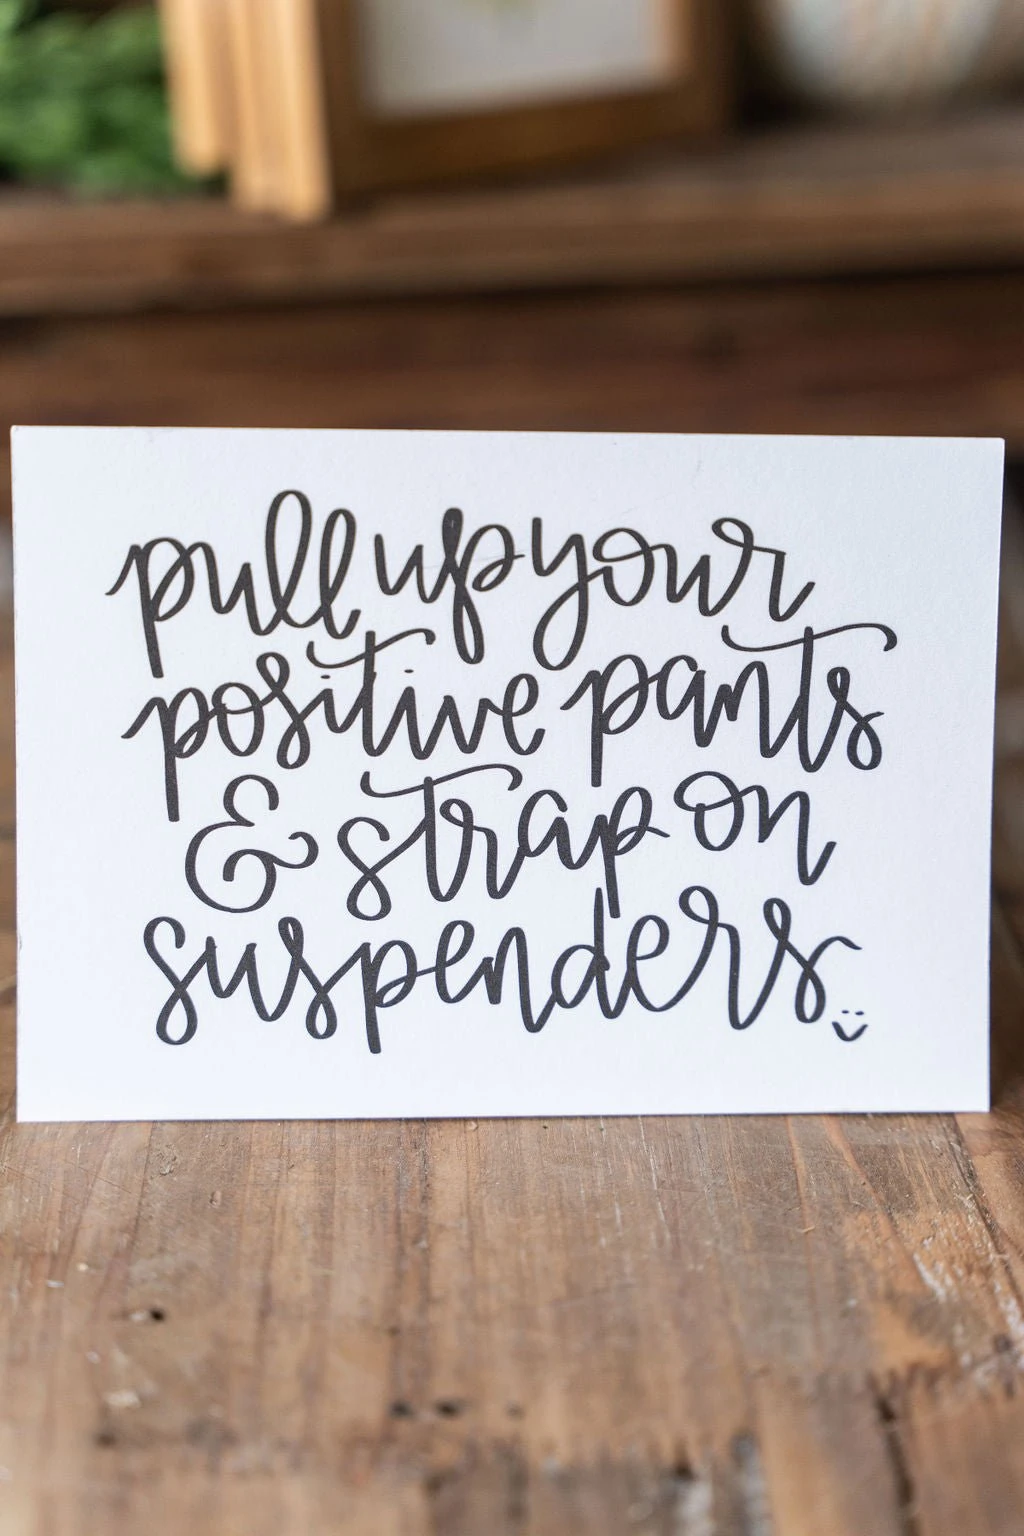 pull up your
positive pants
& strap on
suspenders